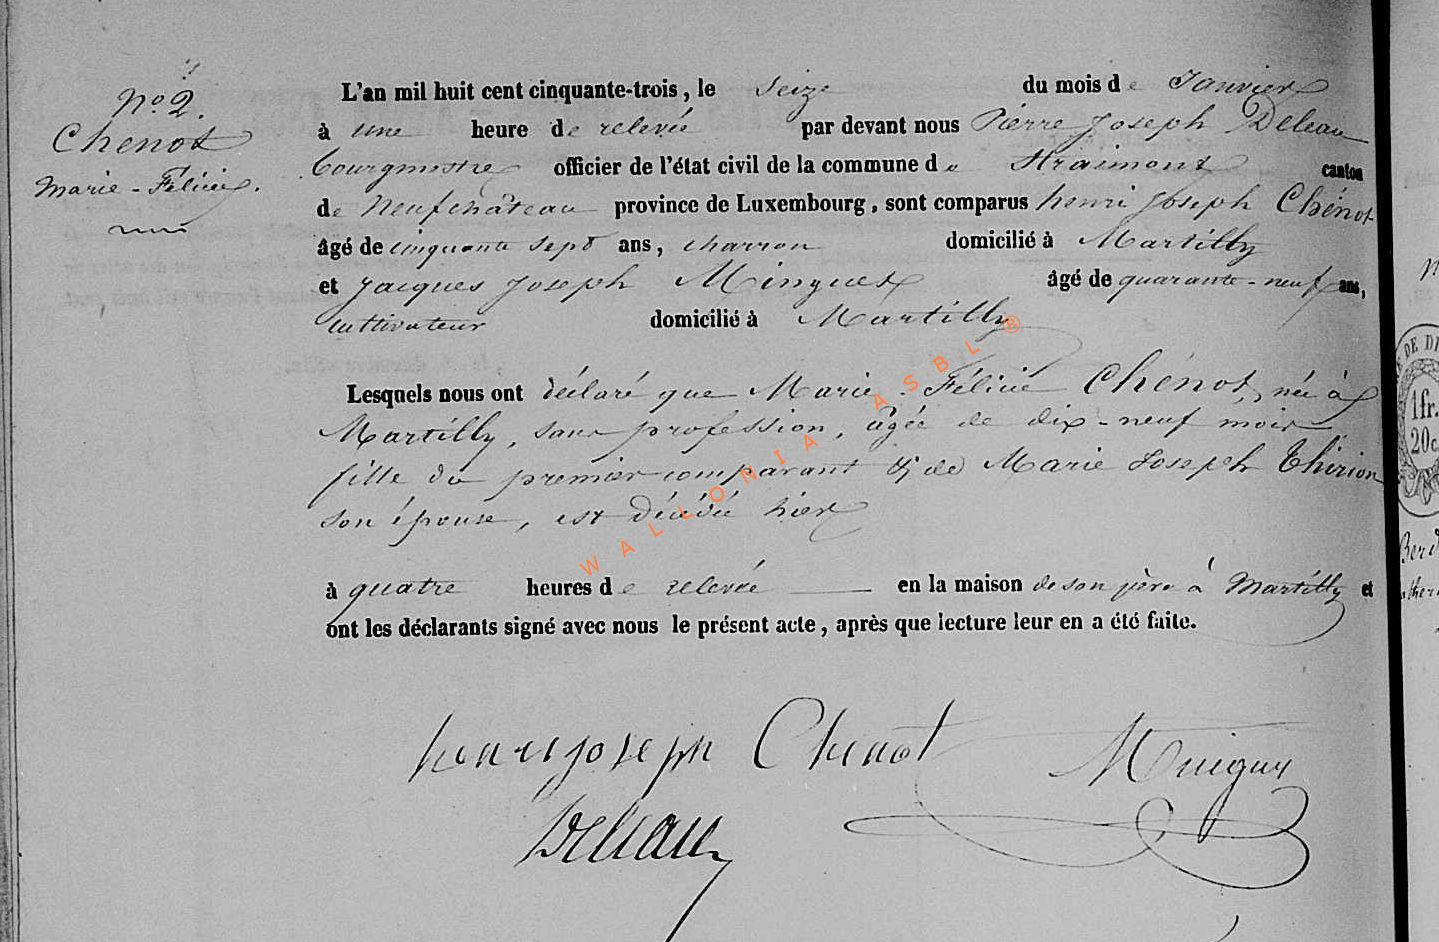 N° 2.
Chenot
Marie - Félicie.
L'an mil huit cent cinquante-trois, le seize du mois de Janvier
à une heure de relevée par devant nous Pierre Joseph Deleau
bourgmestre officier de l'état civil de la commune de Straimont canton
de Neufchâteau province de Luxembourg, sont comparus henri Joseph Chénot
âgé de cinquante sept ans, charron domicilié à Martilly
et Jacques Joseph Minguet âgé de quarante-neuf ans,
cultivateur domicilié à Martilly
Lesquels nous ont déclaré que Marie-Félicié Chénot, née à
Martilly, sans profession, âgée de dix-neuf mois
fille du premier comparant & de Marie Joseph Thirion
son épouse, est décédée hier
à quatre heures de relevée en la maison de son père à Martilly et
ont les déclarants signé avec nous le présent acte, après que lecture leur en a été faite.
henri joseph Chenot
Deleau
WALLONIA ASBL ®
E DE DI
1 fr.
20 c.